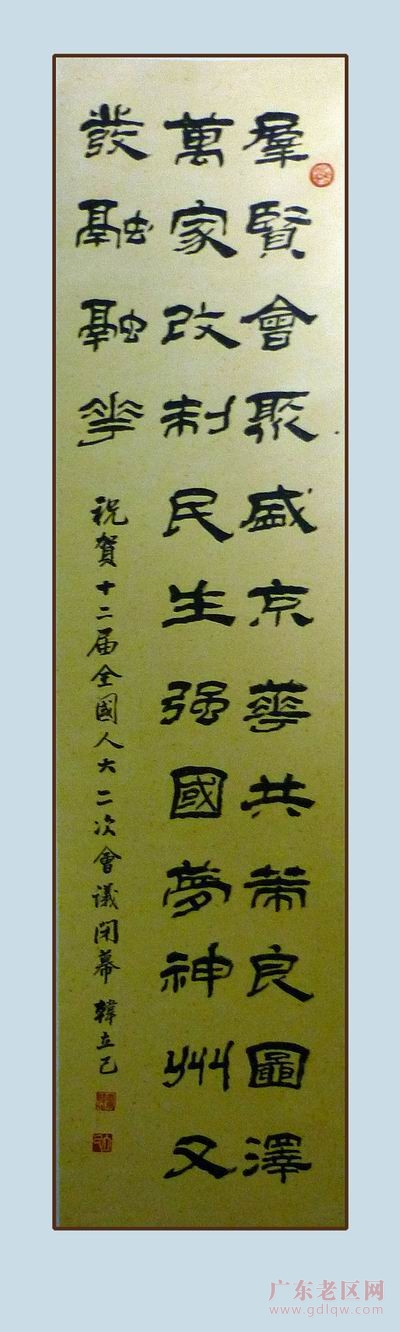 羣賢會聚盛京華共策良圖澤
萬家改制民生强國夢神州又
發融融華
祝賀十二届全國人大二次會議闭幕 韓立己
广东老区网
www.gdlqw.com